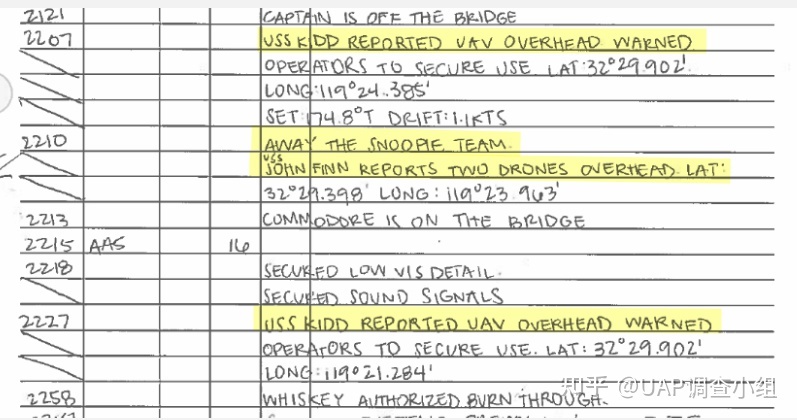 2121 CAPTAIN IS OFF THE BRIDGE
2207 USS KIDD REPORTED UAV OVERHEAD WARNED
OPERATORS TO SECURE USE. LAT: 32°29.902'
LONG: 119°24.385'
SET: 174.8°T DRIFT: 1.1KTS
2210 AWAY THE SNOOPIE TEAM.
USS JOHN FINN REPORTS TWO DRONES OVERHEAD LAT:
32°29.398' LONG: 119°23.963'
2213 COMMODORE IS ON THE BRIDGE
2215 AAS 16
2218 SECURED LOW VIS DETAIL.
SECURED SOUND SIGNALS
2227 USS KIDD REPORTED UAV OVERHEAD WARNED
OPERATORS TO SECURE USE. LAT: 32°29.902'
LONG: 119°21.284'
2258 WHISKEY AUTHORIZED BURN THROUGH.
知乎 @UAP调查小组